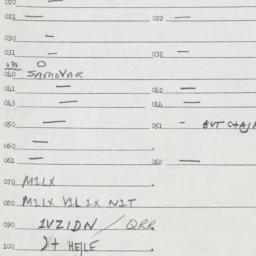 020
021 — 022 —
030 —
031 — 032 —
033 O
040 SAMOVAR
041 — 042 —
043 — 044 —
050 — 051 - BUT
060 —
061 — 062 —
070 M1LX
080 M1LX V1L 1X N1T
090 1VZIDN / QRR
100 )+ HEJLE